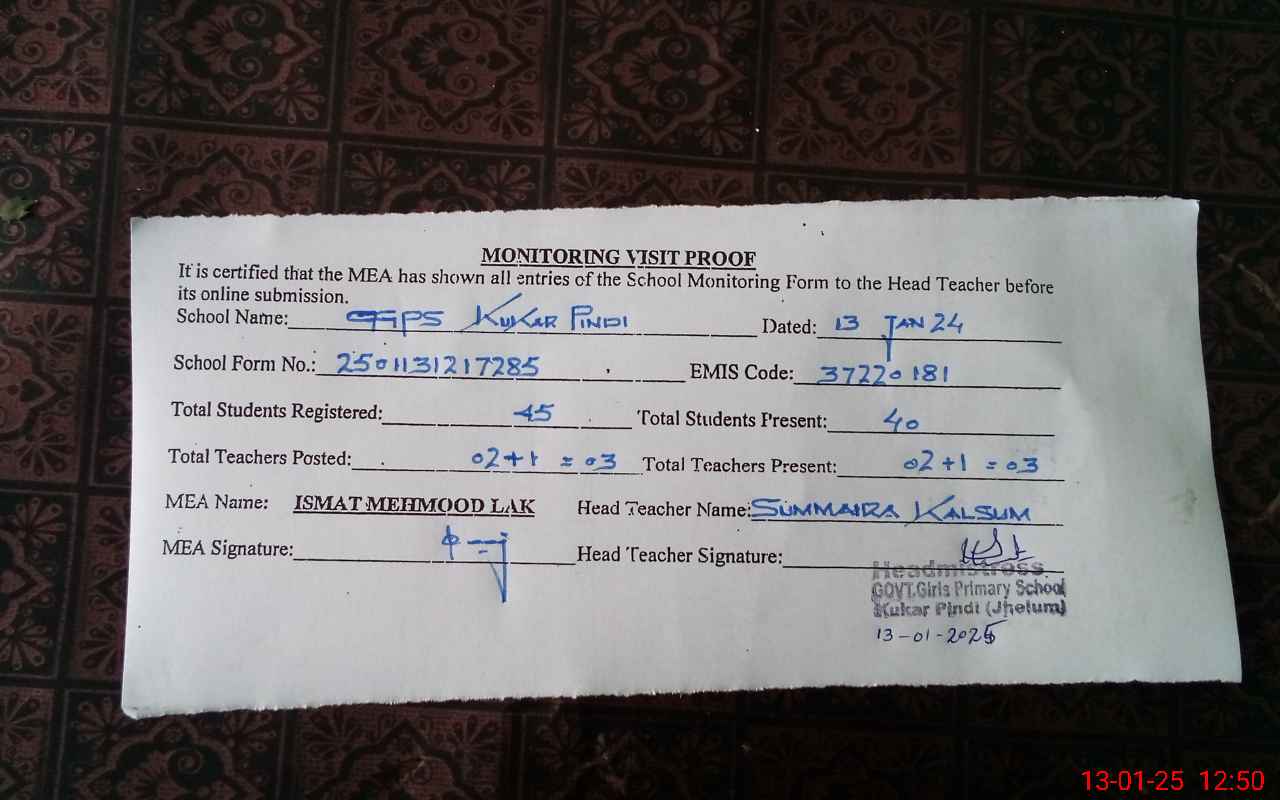 MONITORING VISIT PROOF
It is certified that the MEA has shown all entries of the School Monitoring Form to the Head Teacher before
its online submission.
School Name: GGPS KUKAR PINDI Dated: 13 JAN 24
School Form No.: 2501131217285 EMIS Code: 37220181
Total Students Registered: 45 Total Students Present: 40
Total Teachers Posted: 02+1 = 03 Total Teachers Present: 02+1 = 03
MEA Name: ISMAT MEHMOOD LAK Head Teacher Name: SUMMAIRA KALSUM
MEA Signature: Head Teacher Signature:
Headmistress
GOVT.Girls Primary School
Kukar Pindi (Jhelum)
13-01-2025
13-01-25 12:50